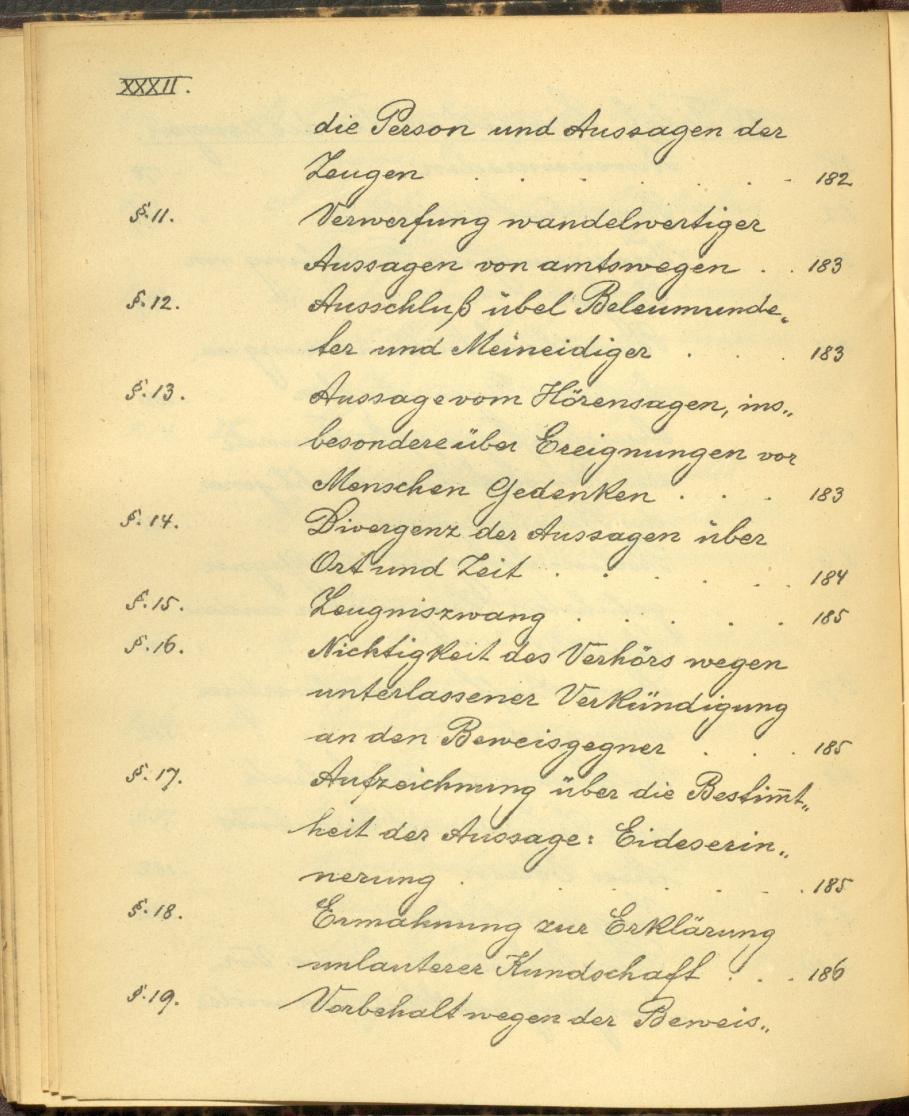 XXXII.
die Person und Aussagen der
Zeugen . . . . . . . 182
§.11. Verwerfung wandelwertiger
Aussagen von amtswegen . . 183
§.12. Ausschluß übel Beleumunde„
ter und Meineidiger . . . 183
§.13. Aussage vom Hörensagen, ins„
besondere über Ereignungen vor
Menschen Gedenken . . . 183
§.14. Divergenz der Aussagen über
Ort und Zeit . . . . . . 184
§.15. Zeugniszwang . . . . . 185
§.16. Nichtigkeit des Verhörs wegen
unterlassener Verkündigung
an den Beweisgegner . . . 185
§.17. Aufzeichnung über die Bestim̅t„
heit der Aussage: Eideserin„
nerung . . . . . . . 185
§.18. Ermahnung zur Erklärung
unlauterer Kundschaft . . . 186
§.19. Vorbehalt wegen der Beweis„